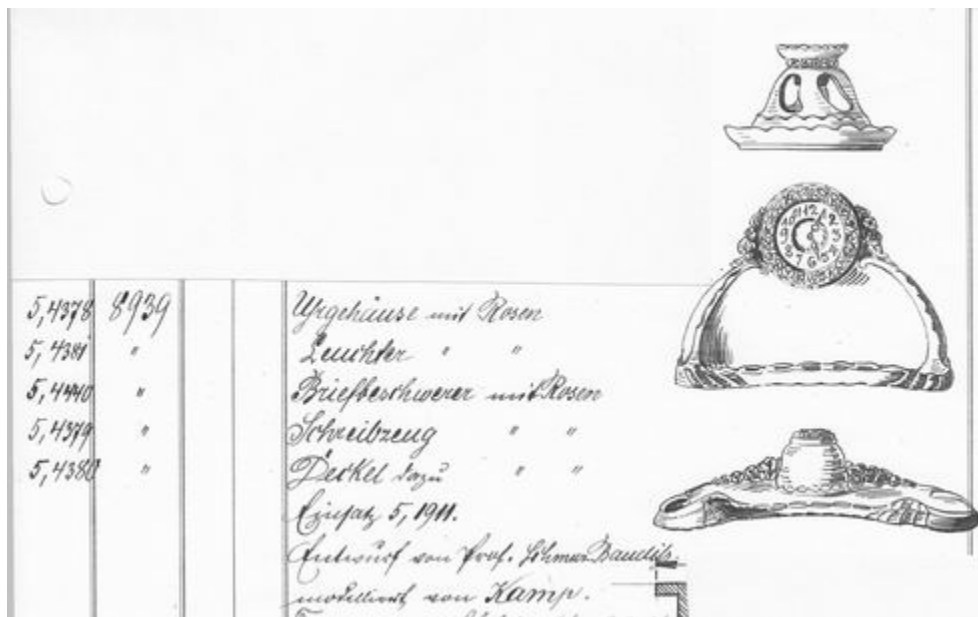 5,4378 8939 Uhrgehäuse mit Rosen
5,4381 " Leuchter " "
5,4440 " Briefbeschwerer mit Rosen
5,4379 " Schreibzeug " "
5,4380 " Deckel dazu " "
Einsatz 5, 1911.
Entwurf von Prof.
modelliert von Kamp.